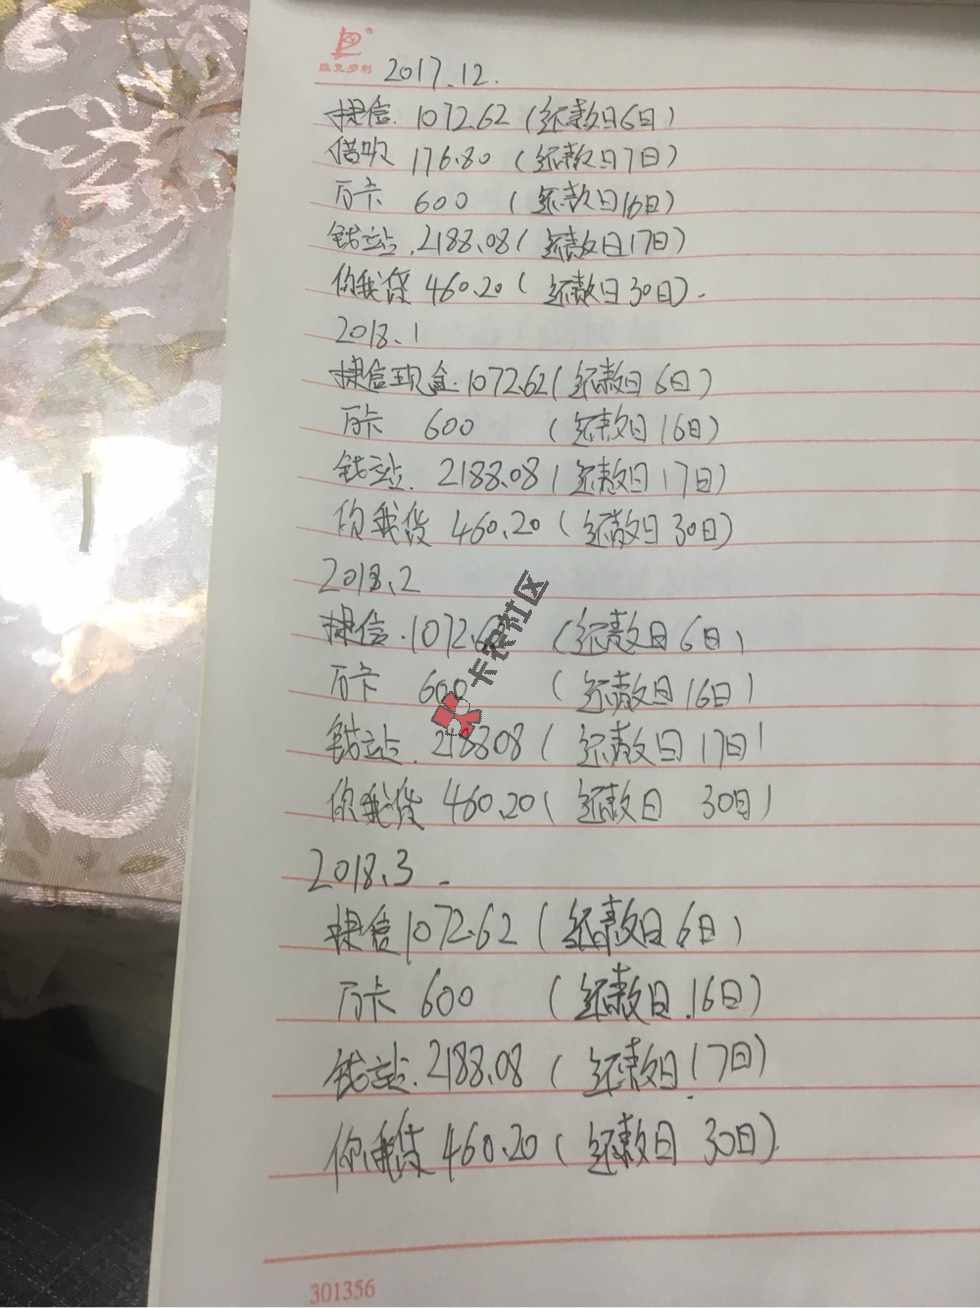 2017.12.
捷信. 1072.62 (还款日6日)
借呗 176.80 (还款日7日)
万卡 600 (还款日16日)
钱站. 2188.08 (还款日17日)
你我贷 460.20 (还款日30日).
2018.1
捷信现金. 1072.62 (还款日6日)
万卡 600 (还款日16日)
钱站. 2188.08 (还款日17日)
你我贷 460.20 (还款日30日)
2018.2
捷信. 1072.62 (还款日6日)
万卡 600 (还款日16日)
钱站. 218808 (还款日17日)
你我贷 460.20 (还款日 30日)
卡农社区
2018.3
捷信 1072.62 (还款日6日)
万卡 600 (还款日.16日)
钱站. 2188.08 (还款日17日)
你我贷 460.20 (还款日 30日).
301356